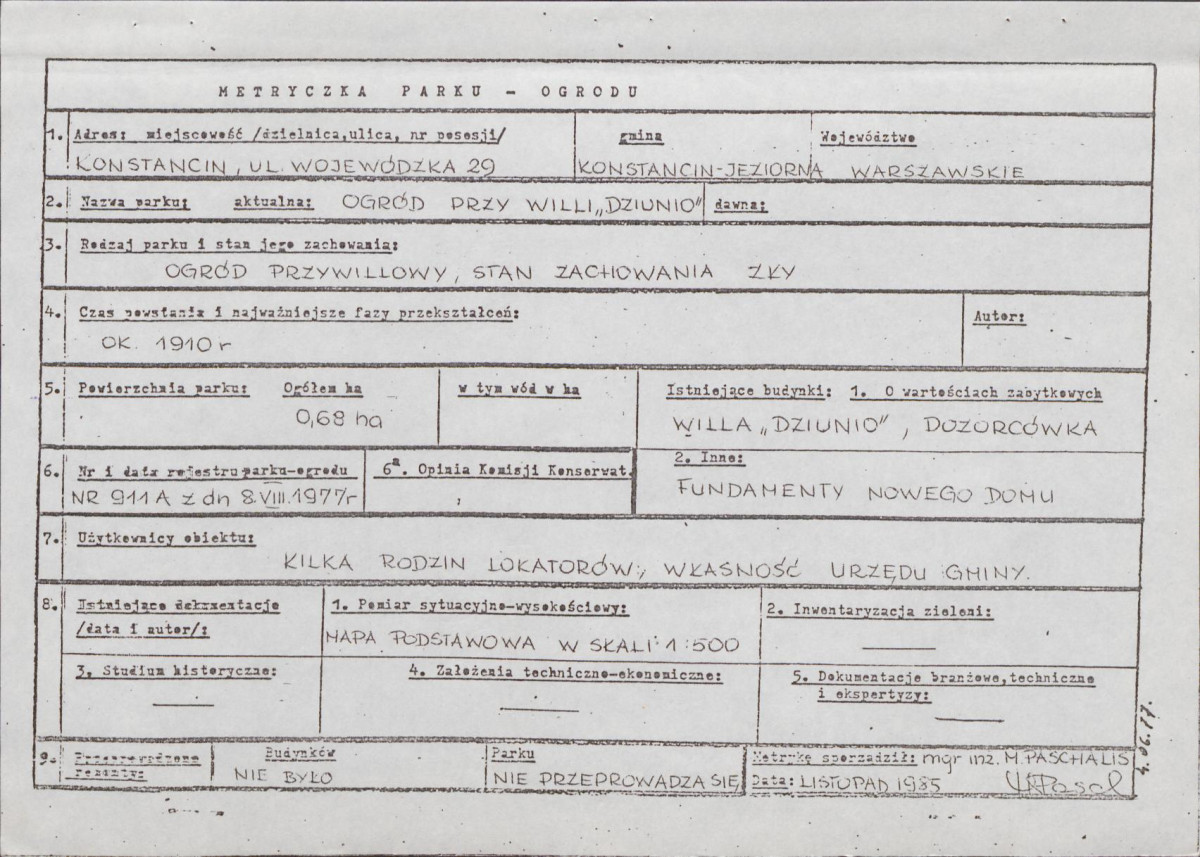 METRYCZKA PARKU - OGRODU
1. Adres: miejscowość /dzielnica,ulica, nr posesji/ gmina Województwo
KONSTANCIN, UL. WOJEWÓDZKA 29 KONSTANCIN-JEZIORNA WARSZAWSKIE
2. Nazwa parku: aktualna: OGRÓD PRZY WILLI „DZIUNIO" dawna:
3. Rodzaj parku i stan jego zachowania:
OGRÓD PRZYWILLOWY, STAN ZACHOWANIA ZŁY
4. Czas powstania i najważniejsze fazy przekształceń: Autor:
OK. 1910 r
5. Powierzchnia parku: Ogółem ha w tym wód w ha Istniejące budynki: 1. O wartościach zabytkowych
0,68 ha WILLA „DZIUNIO", DOZORCÓWKA
6. Nr i data rejestru parku-ogrodu 6a. Opinia Komisji Konserwat. 2. Inne:
NR 911 A z dn 8.VIII.1977r FUNDAMENTY NOWEGO DOMU
7. Użytkownicy obiektu:
KILKA RODZIN LOKATORÓW, WŁASNOŚĆ URZĘDU GMINY.
8. Istniejące dokumentacje 1. Pomiar sytuacyjno-wysokościowy: 2. Inwentaryzacja zieleni:
/data i autor/: MAPA PODSTAWOWA W SKALI 1:500 —
3. Studium historyczne: 4. Założenia techniczno-ekonomiczne: 5. Dokumentacje branżowe,techniczne
i ekspertyzy:
— — —
9. Przeprowadzone Budynków Parku Metrykę sporządził: mgr inż. M. PASCHALIS
remonty: NIE BYŁO NIE PRZEPROWADZA SIĘ Data: LISTOPAD 1985